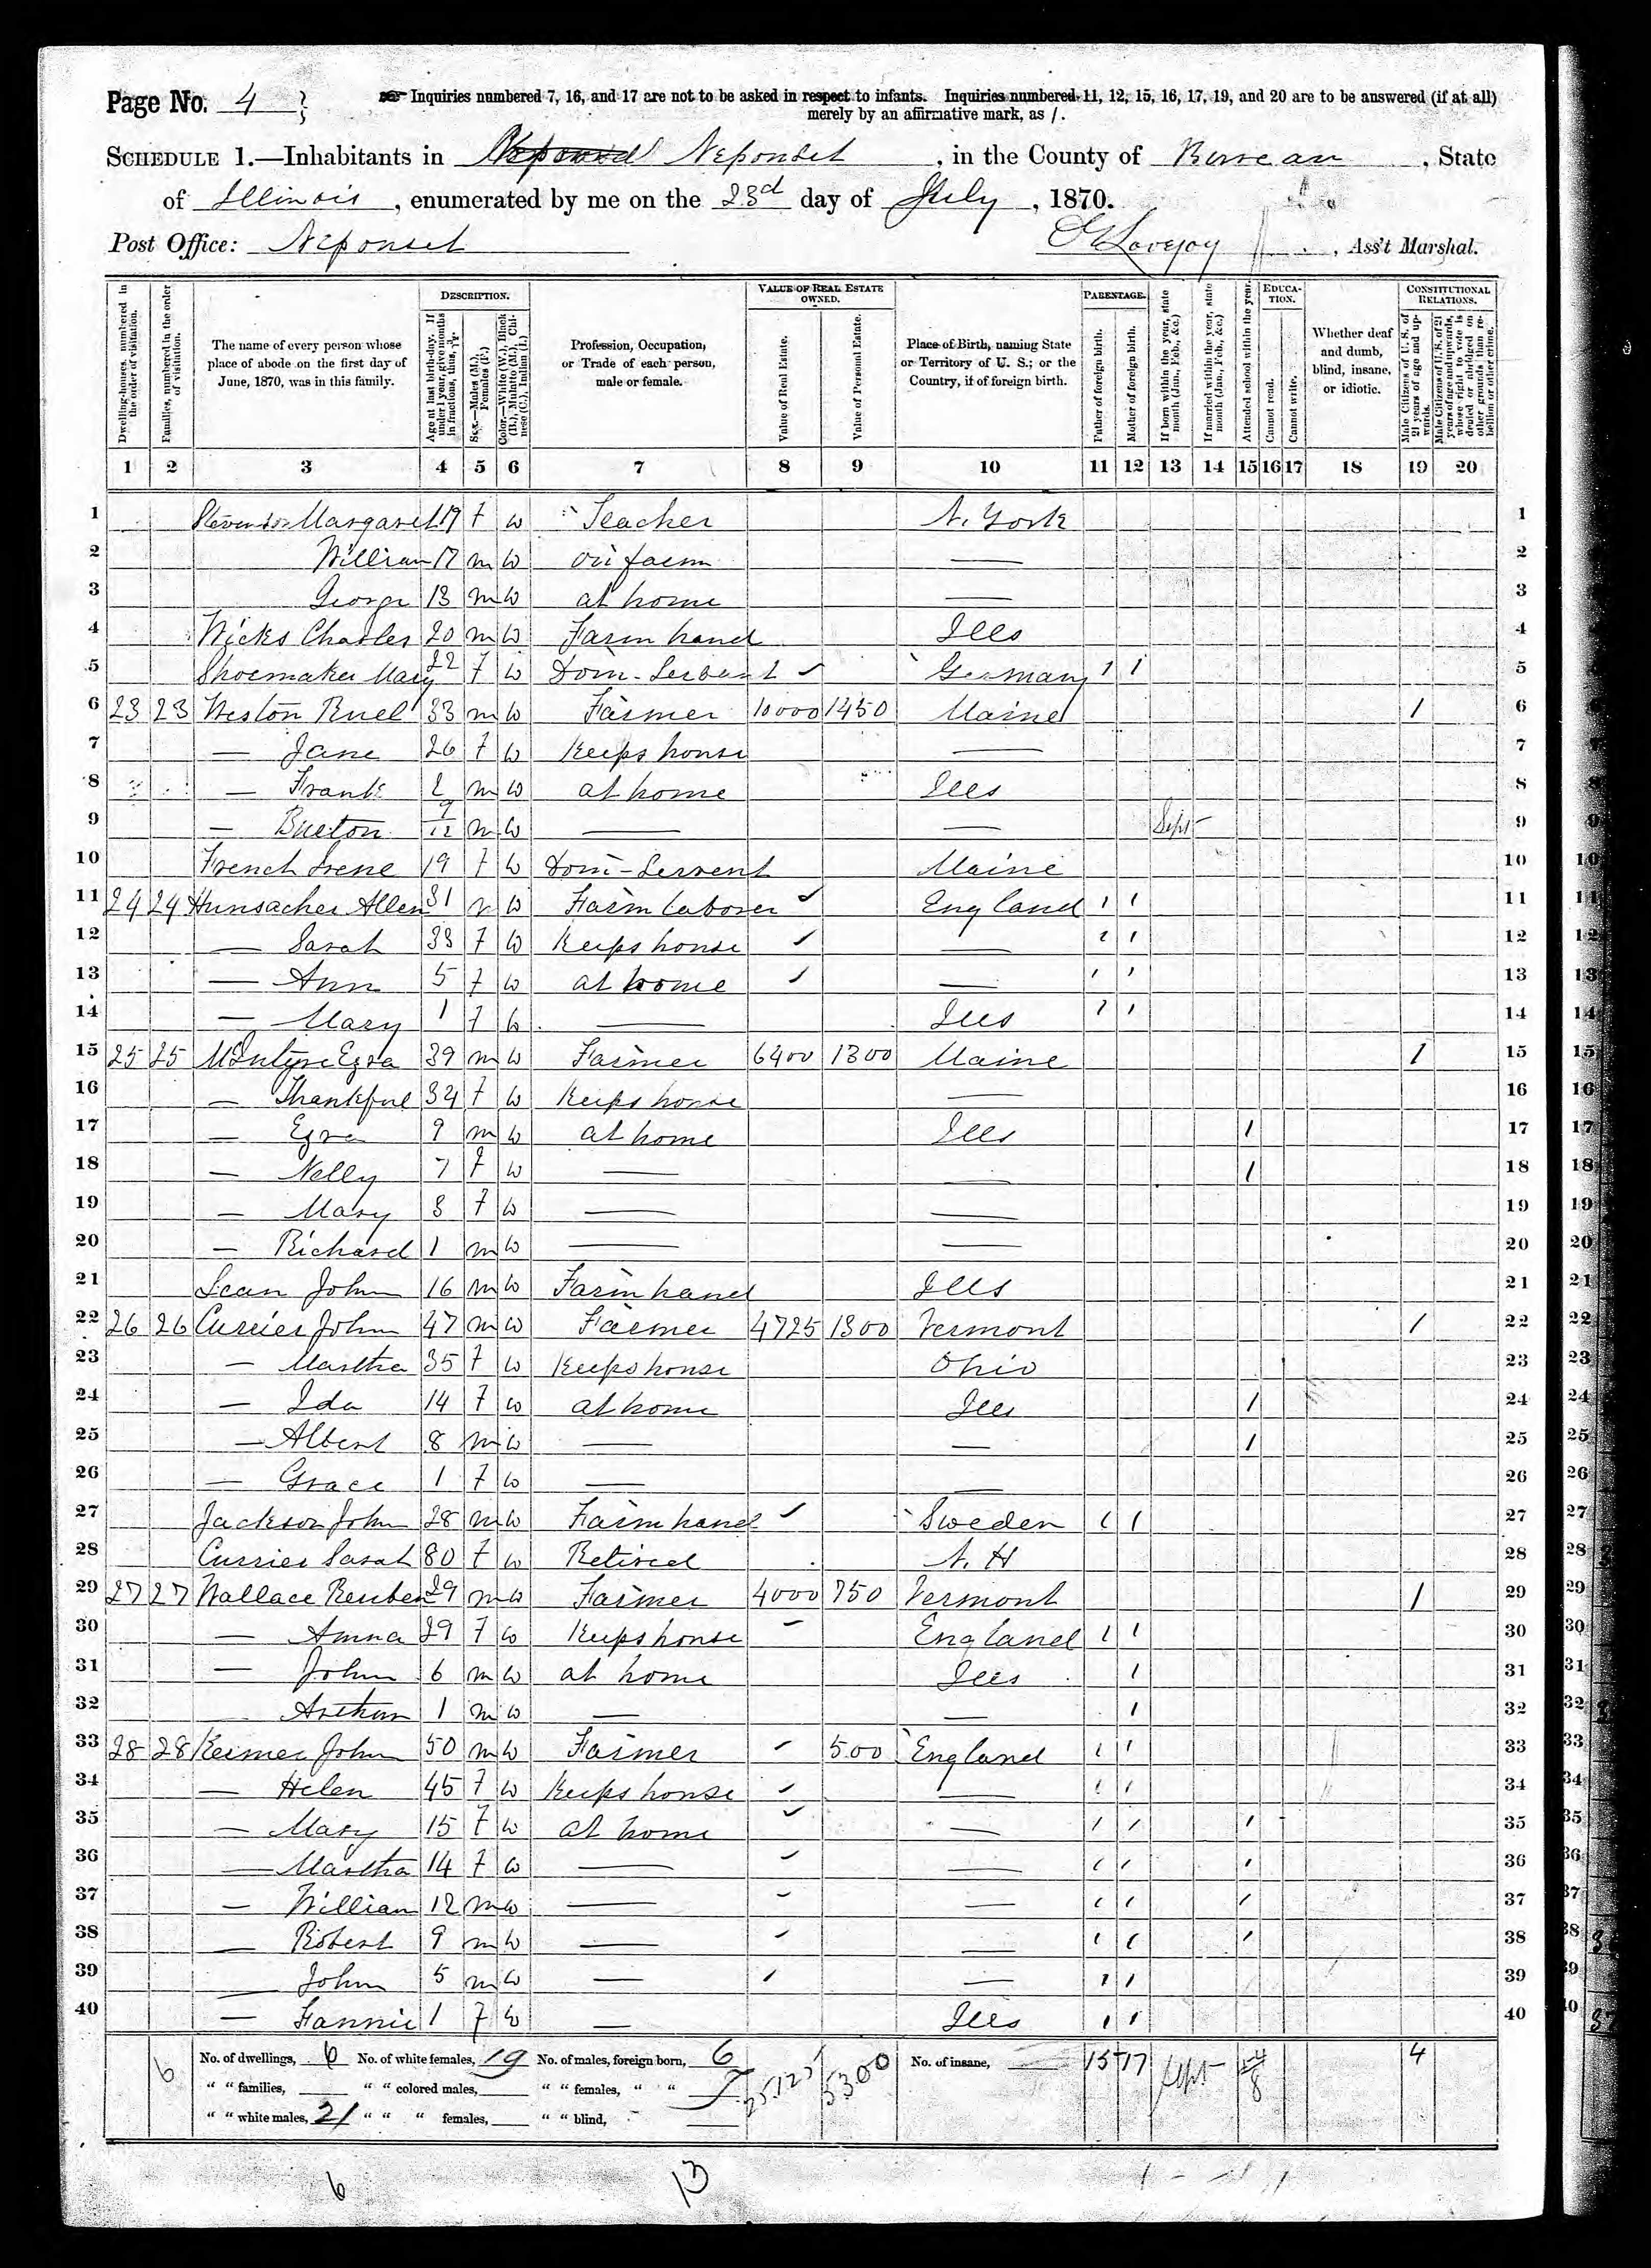 Page No. 4
Inquiries numbered 7, 16, and 17 are not to be asked in respect to infants. Inquiries numbered 11, 12, 15, 16, 17, 19, and 20 are to be answered (if at all)
merely by an affirmative mark, as /.
SCHEDULE 1.—Inhabitants in Neponset, in the County of Bureau, State
of Illinois, enumerated by me on the 23d day of July, 1870.
Post Office: Neponset Lovejoy, Ass't Marshal.
DESCRIPTION. VALUE OF REAL ESTATE OWNED. PARENTAGE. EDUCATION. CONSTITUTIONAL RELATIONS.
Dwelling-houses, numbered in the order of visitation.
Families, numbered in the order of visitation.
The name of every person whose place of abode on the first day of June, 1870, was in this family.
Age at last birth-day. If under 1 year, give months in fractions, thus, 3/12.
Sex.—Males (M.), Females (F.)
Color.—White (W.), Black (B.), Mulatto (M.), Chinese (C.), Indian (I.)
Profession, Occupation, or Trade of each person, male or female.
Value of Real Estate.
Value of Personal Estate.
Place of Birth, naming State or Territory of U. S.; or the Country, if of foreign birth.
Father of foreign birth.
Mother of foreign birth.
If born within the year, state month (Jan., Feb., &c.)
If married within the year, state month (Jan., Feb., &c.)
Attended school within the year.
Cannot read.
Cannot write.
Whether deaf and dumb, blind, insane, or idiotic.
Male Citizens of U. S. of 21 years of age and upwards.
Male Citizens of U. S. of 21 years of age and upwards, whose right to vote is denied or abridged on other grounds than rebellion or other crime.
1 2 3 4 5 6 7 8 9 10 11 12 13 14 15 16 17 18 19 20
1 Margaret 19 F W Teacher N. York 1
2 William 17 m W on farm — 2
3 George 13 m W at home — 3
4 Wicks Charles 20 m W Farm hand Ills 4
5 Shoemaker Mary 22 F W Dom-Servant Germany 1 1 5
6 23 23 Weston Ruel 33 m W Farmer 10000 1450 Maine 1 6
7 — Jane 26 F W Keeps house — 7
8 — Frank 2 m W at home Ills 8
9 — Burton 9/12 m W — — Sept 9
10 French Irene 19 F W Dom-Servent Maine 10
11 24 24 Hunsacher Allen 31 W Farm laborer England 1 1 11
12 — Sarah 33 F W Keeps house — 1 1 12
13 — Ann 5 F W at home — 1 1 13
14 — Mary 1 F W — Ills 1 1 14
15 25 25 McIntyre Ezra 39 m W Farmer 6400 1300 Maine 1 15
16 — Thankful 34 F W Keeps house — 16
17 — Ezra 9 m W at home Ills 1 17
18 — Nelly 7 F W — — 1 18
19 — Mary 3 F W — — 19
20 — Richard 1 m W — — 20
21 John 16 m W Farm hand Ills 21
22 26 26 Currier John 47 m W Farmer 4725 1300 Vermont 1 22
23 — Martha 35 F W Keeps house Ohio 23
24 — Ida 14 F W at home Ills 1 24
25 — Albert 8 m W — — 1 25
26 — Grace 1 F W — — 26
27 Jackson John 28 m W Farm hand Sweden 1 1 27
28 Currier Sarah 80 F W Retired N. H 28
29 27 27 Wallace Reuben 29 m W Farmer 4000 750 Vermont 1 29
30 — Anna 29 F W Keeps house England 1 1 30
31 — John 6 m W at home Ills 1 31
32 Arthur 1 m W — — 1 32
33 28 28 John 50 m W Farmer 500 England 1 1 33
34 — Helen 45 F W Keeps house — 1 1 34
35 — Mary 15 F W at home — 1 1 1 35
36 — Martha 14 F W — — 1 1 1 36
37 — William 12 m W — — 1 1 1 37
38 — Robert 9 m W — — 1 1 1 38
39 — John 5 m W — — 1 1 39
40 — Fannie 1 F W — Ills 1 1 40
6 No. of dwellings, 6 No. of white females, 19 No. of males, foreign born, 6 25125 5300 No. of insane, 15 17 Sept 8 4
" " families, " " colored males, " " females, " " 7
" " white males, 21 " " " females, " " blind,
6 13